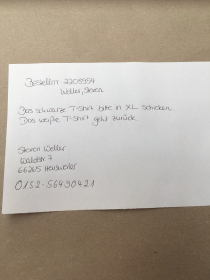 Bestellnr. 2205954
Weller, Steron
Das schwarze T-Shirt bitte in XL schicken.
Das weiße T-Shirt geht zurück.
Steron Weller
Waldstr. 7
66265 Heusweiler
0152-56490421